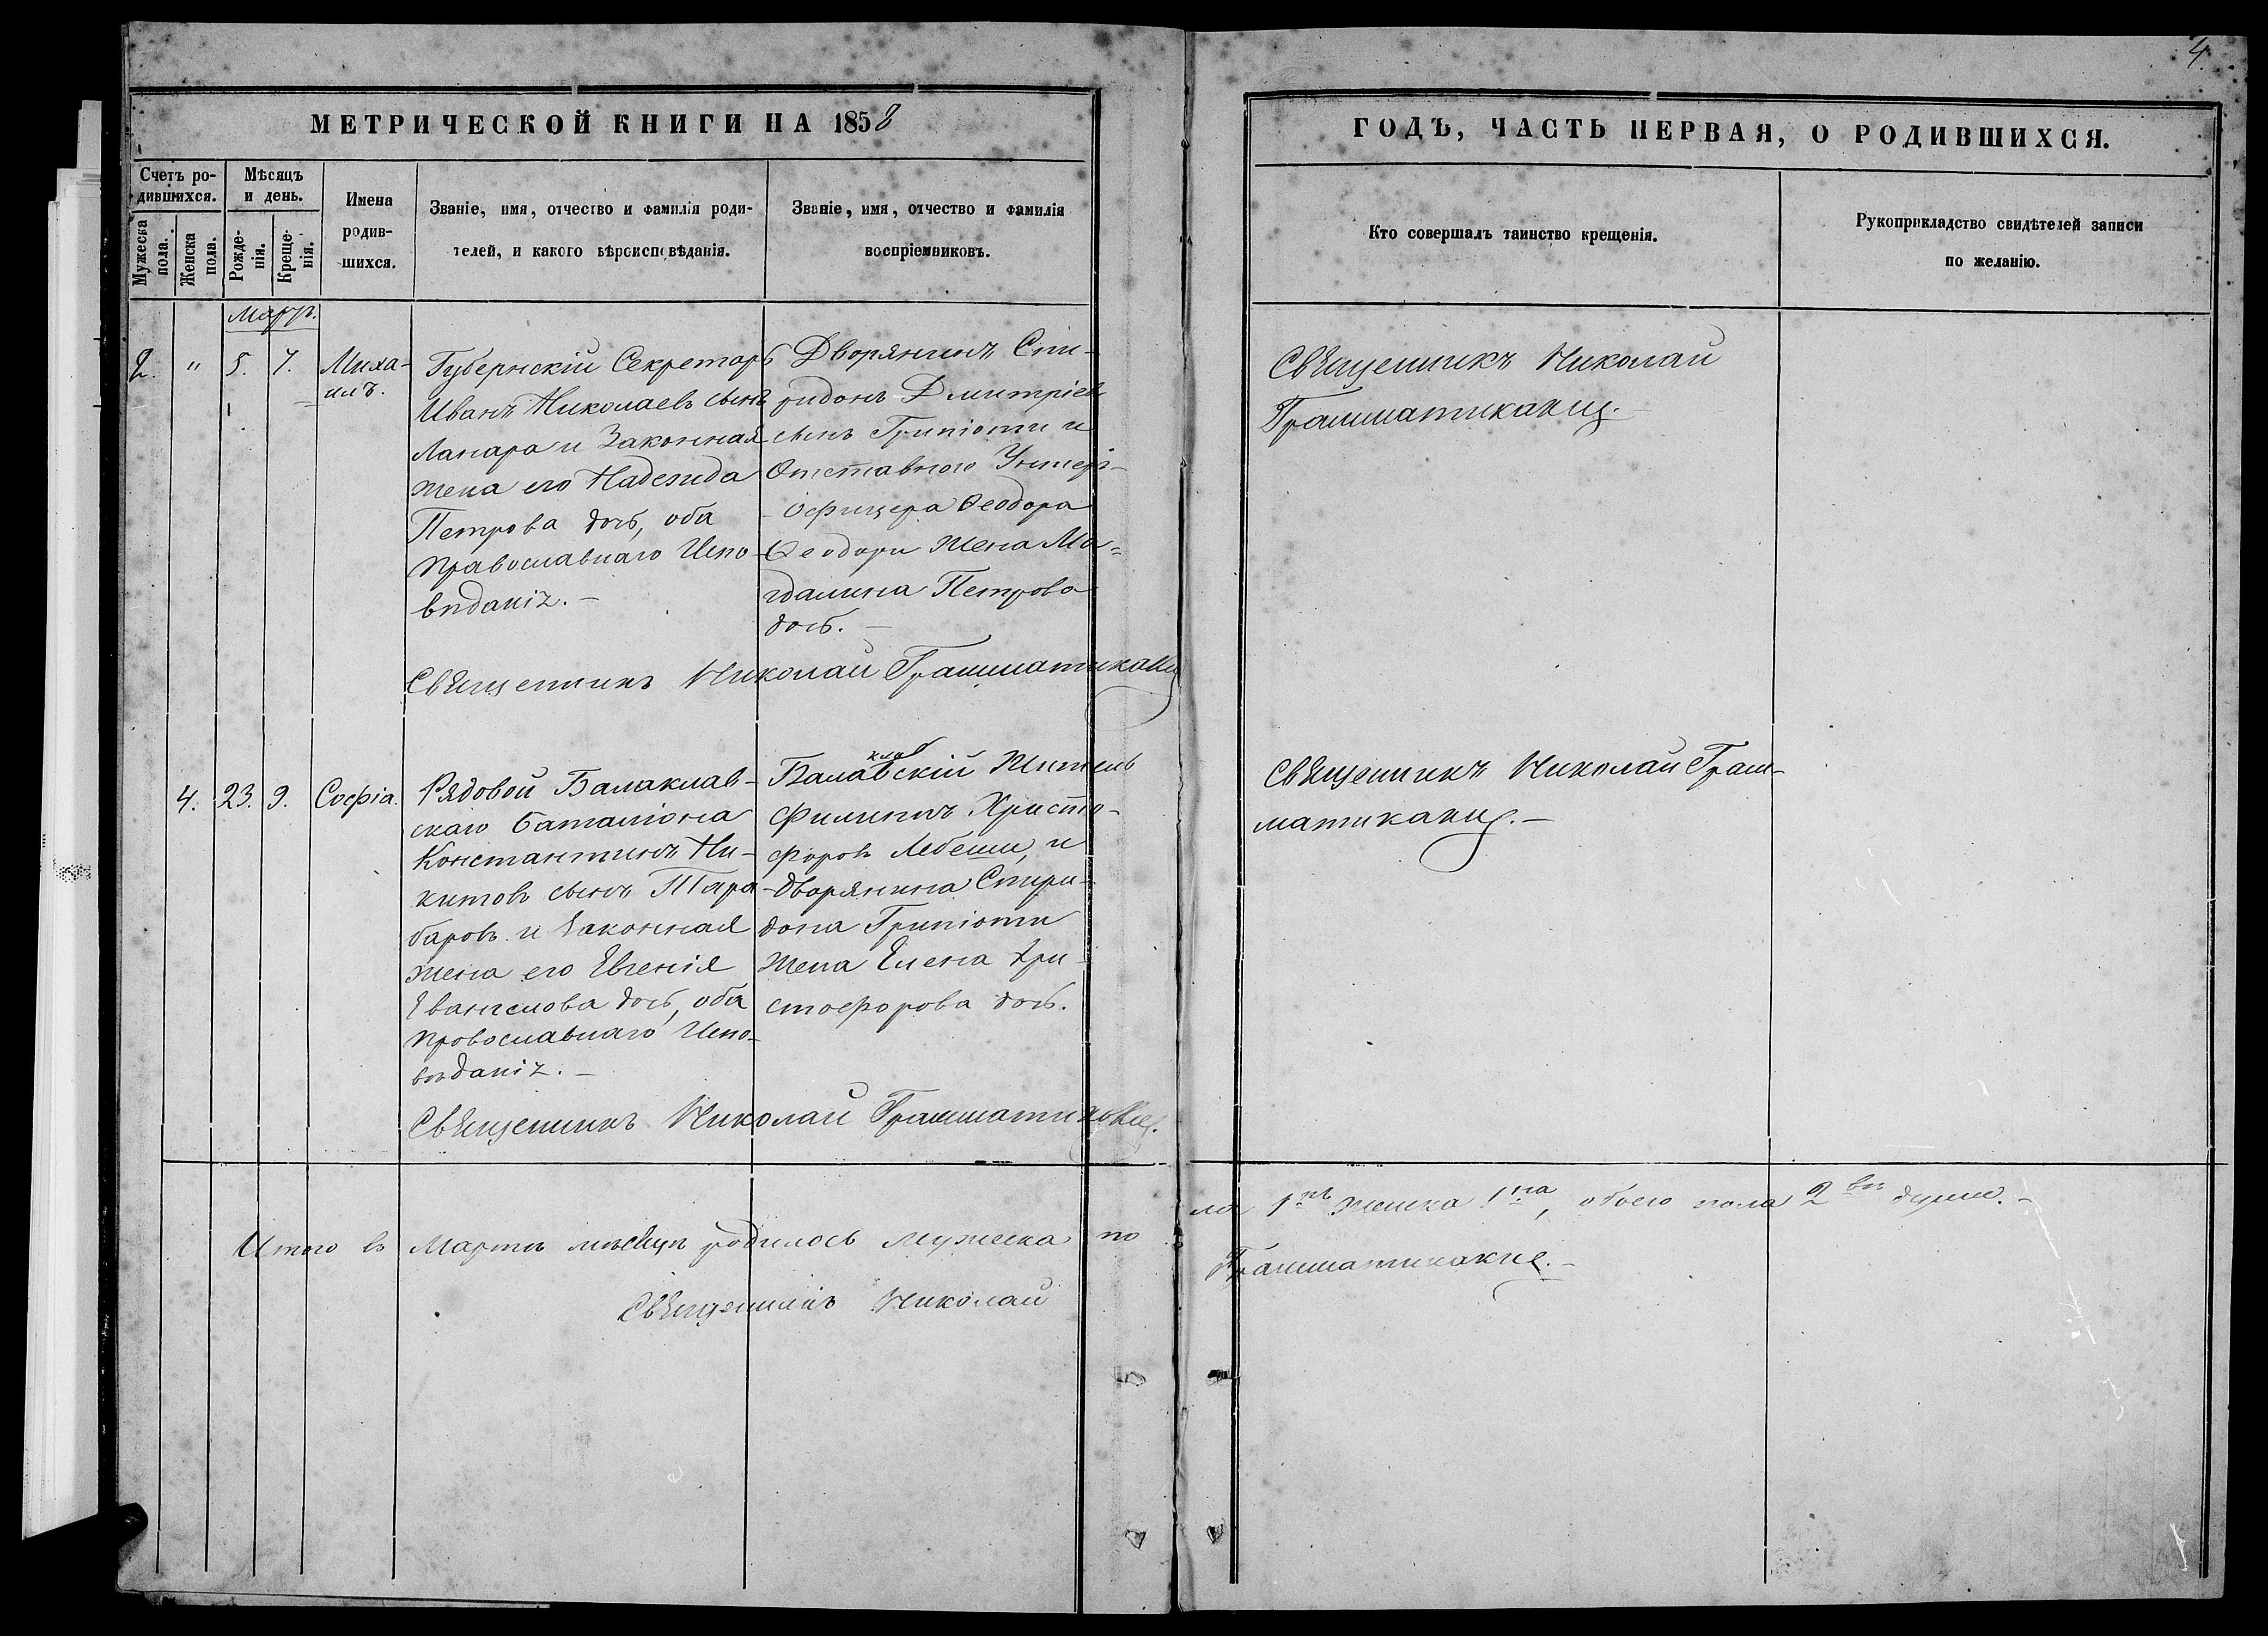 4.
МЕТРИЧЕСКОЙ КНИГИ НА 1858
ГОДЪ, ЧАСТЬ ПЕРВАЯ, О РОДИВШИХСЯ.
Счетъ ро-
дившихся.
Мужеска
пола.
Женска
пола.
Мѣсяцъ
и день.
Рожде-
нія.
Креще-
нія.
Имена
родив-
шихся.
Званіе, имя, отчество и фамилія роди-
телей, и какого вѣроисповѣданія.
Званіе, имя, отчество и фамилія
воспріемниковъ.
Кто совершалъ таинство крещенія.
Рукоприкладство свидѣтелей записи
по желанію.
Мартъ.
2. " 5. 7.
Миха-
илъ.
Губернскій Секретарь
Иванъ Николаевъ сынъ
Лапара и Законная
жена его Надежда
Петрова дочь, оба
православнаго Испо-
вѣданія. –
Дворянинъ Спи-
ридонъ Дмитріев
сынъ Грипіоти и
Отставного Унтеръ-
Офицера Ѳеодора
Ѳеодори жена Ма-
гдалина Петрова
дочь. –
Священникъ Николай Грамматикаки
Священникъ Николай
Грамматикаки. –
4. 23. 9. Софіа.
Рядовой Балаклав-
скаго баталіона
Константинъ Ни-
китовъ сынъ
баровъ и Законная
жена его Евгенія
Евангелова дочь, оба
провославнаго Испо-
вѣданія. –
клав
Балавскій житель
Филиппъ Христо-
форовъ и
дворянина Спири-
дона Грипіоти
жена Елена Хри-
стофорова дочь.
Священникъ Николай Грамматикаки.
Священникъ Николай Грам-
матикаки. –
Итого въ Мартѣ мѣсяцѣ родилось мужеска по
ла 1нъ женска 1на, обоего пола 2вѣ души. –
Священникъ Николай
Грамматикаки. –